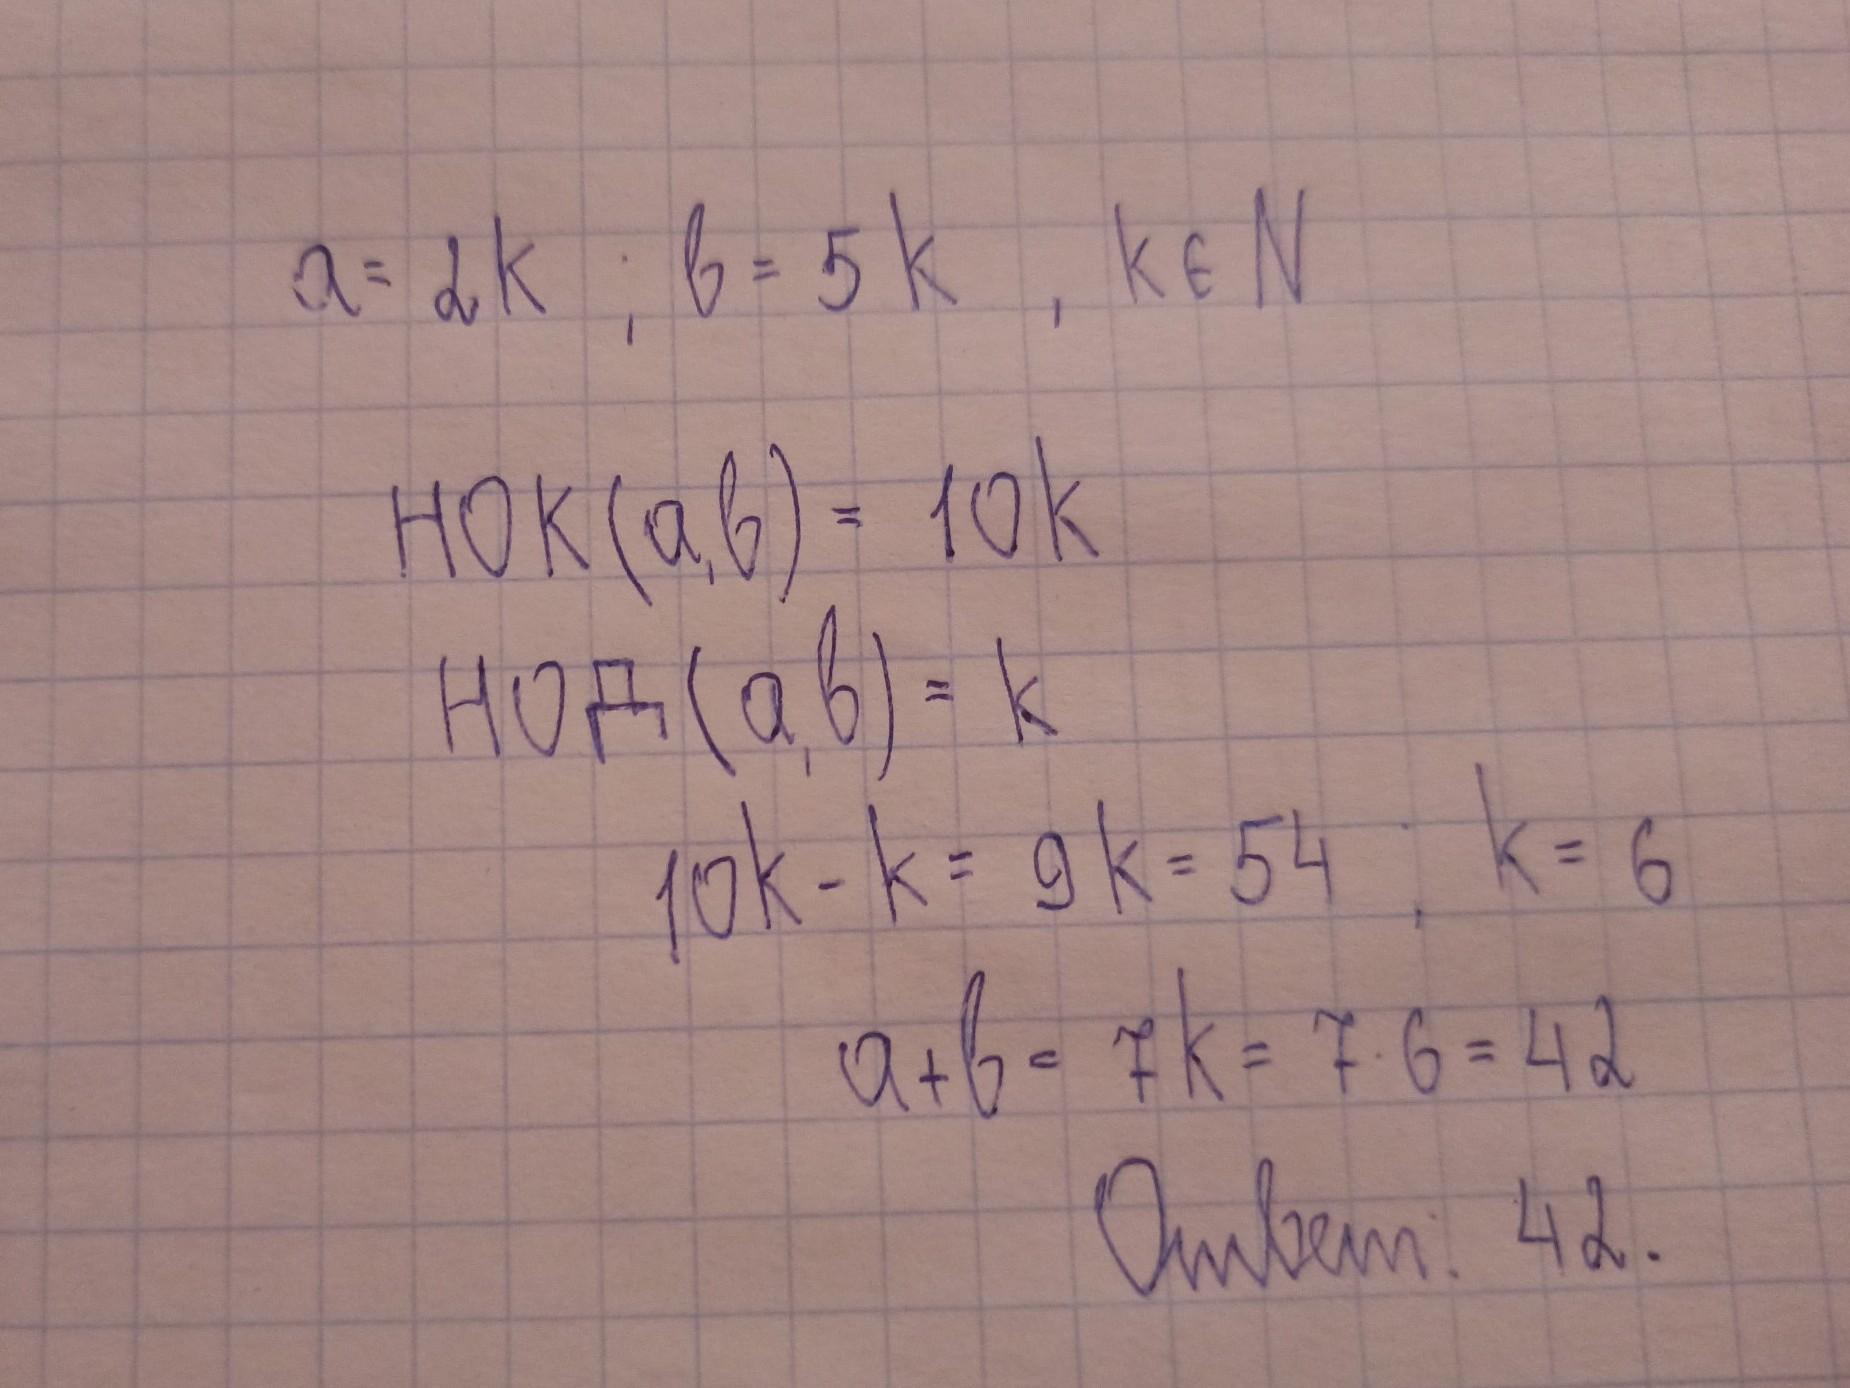 a = 2k ; в = 5k , k ∈ N
НОК(а,в) = 10k
НОД(а,в) = k
10k - k = 9k = 54 ; k = 6
а + в = 7k = 7 · 6 = 42
Ответ: 42.